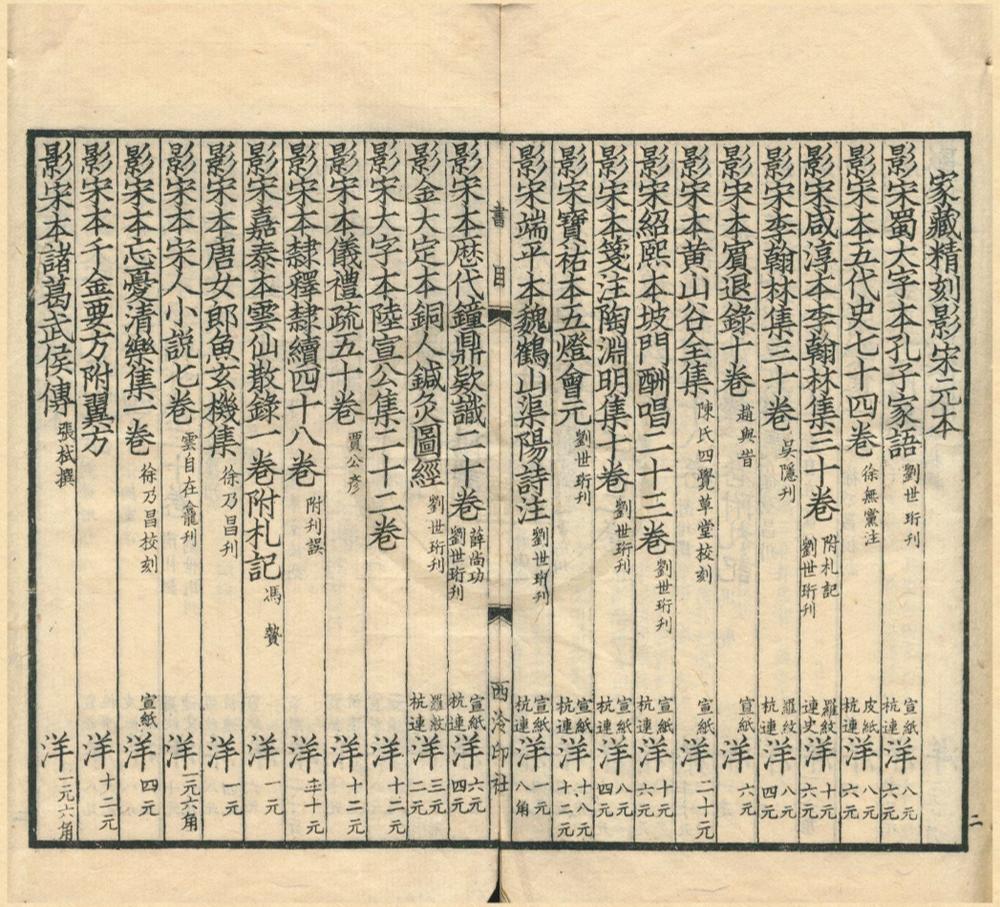 家藏精刻影宋元本
影宋蜀大字本孔子家語 劉世珩刊 宣紙 杭連 洋 八元 六元
影宋本五代史七十四卷 徐無黨注 皮紙 杭連 洋 八元 六元
影宋咸淳本李翰林集三十卷 附札記 劉世珩刊 羅紋 連史 洋 十元 六元
影宋李翰林集三十卷 吳隱刊 羅紋 杭連 洋 八元 四元
影宋本賓退錄十卷 趙與旹 宣紙 洋 六元
影宋本黃山谷全集 陳氏四覺草堂校刻 宣紙 洋 二十元
影宋紹熙本坡門酬唱二十三卷 劉世珩刊 宣紙 杭連 洋 十元 六元
影宋本箋注陶淵明集十卷 劉世珩刊 宣紙 杭連 洋 八元 四元
影宋寶祐本五燈會元 劉世珩刊 宣紙 杭連 洋 十八元 十二元
影宋端平本魏鶴山渠陽詩注 劉世珩刊 宣紙 杭連 洋 一元 八角
書目 西泠印社
影宋本歷代鐘鼎欵識二十卷 薛尚功 劉世珩刊 宣紙 杭連 洋 六元 四元
影金大定本銅人鍼灸圖經 劉世珩刊 羅紋 杭連 洋 三元 二元
影宋大字本陸宣公集二十二卷 洋 十二元
影宋本儀禮疏五十卷 賈公彥 洋 十二元
影宋本隸釋隸續四十八卷 附刊誤 洋 十元
影宋嘉泰本雲仙散錄一卷附札記 馮贄 洋 一元
影宋本唐女郎魚玄機集 徐乃昌刊 洋 一元
影宋本宋人小說七卷 雲自在龕刊 洋 三元六角
影宋本忘憂清樂集一卷 徐乃昌校刻 宣紙 洋 四元
影宋本千金要方附翼方 洋 十二元
影宋本諸葛武侯傳 張栻撰 洋 元六角
二